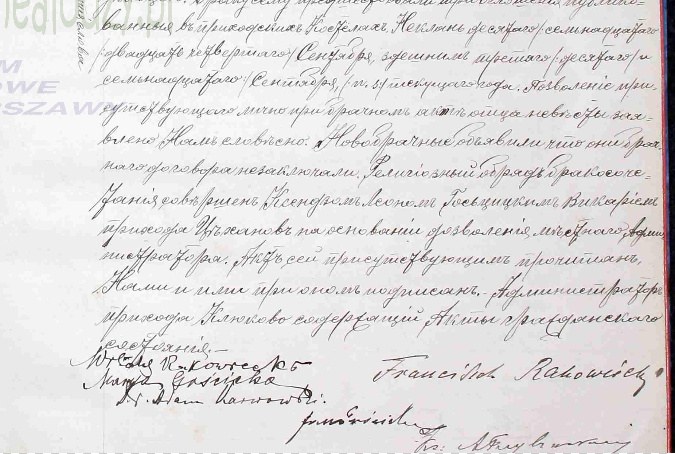 ванныя въ приходскихъ Костелахъ, Неклань десятаго/ семнадцатаго
двадцать четвертаго/ Сентября, здешнимъ третьяго/ десятаго/ и
семьнадцатаго/ Сентября, /н. з/ текущаго года. Позволеніе при-
сутствующаго лично при брачномъ актѣ отца невѣсты зая-
влено Намъ словѣсно. Новобрачные объявили что они брач-
наго договора незаключали. Религіозный обрядъ бракосоче-
танія совѣршенъ Ксендзомъ Леономъ Госьцицкимъ Викаріемъ
прихода Цѣхановъ на основаніи дозволенія мѣстнаго Адми-
нистратора. Актъ сей присутствующимъ прочитанъ,
Нами и ими при ономъ подписанъ. - Администраторъ
прихода Клюково содержащій Акты гражданскаго
состоянія. -
Witold Rakowiecki
Marya Gościcka
Dr. Adam Karwowski.
Franciszek Rakowiecki
Jan Gościcki
Ks:
WARSZAWIE